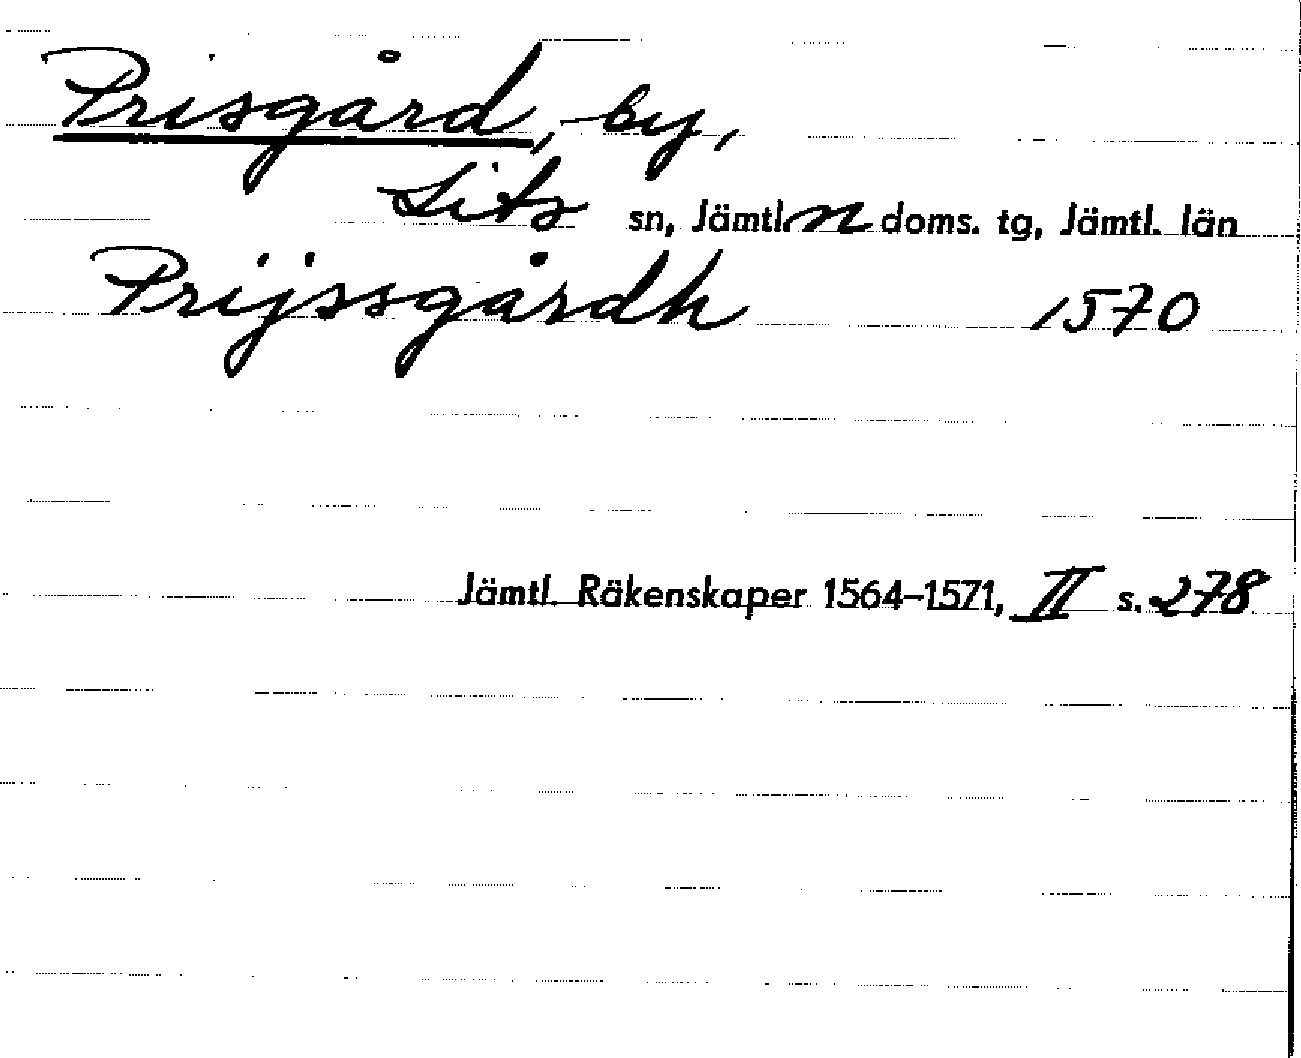 Prisgård, by,
Lits sn, Jämtl. n doms. tg, Jämtl. län
Prijssgårdh 1570
Jämtl. Räkenskaper 1564–1571, II s. 278